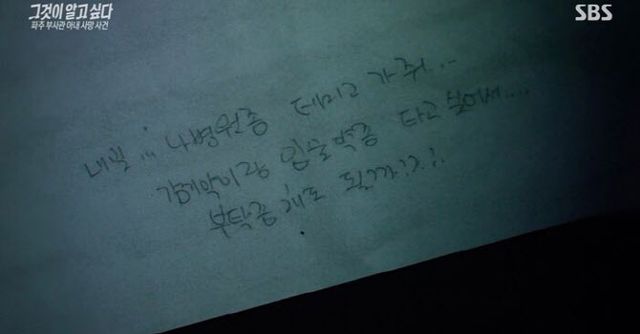 그것이 알고 싶다
파주 부사관 아내 사망 사건
SBS
내일 ... 나 병원좀 데리고 가 줘 ..
감기약이랑 입술약좀 타고 싶어서 ....
부탁좀 해도 될까?